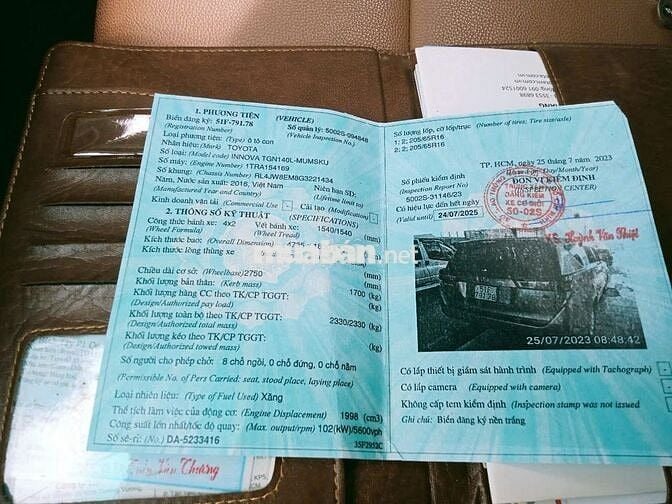 1. PHƯƠNG TIỆN (VEHICLE)
Biển đăng ký: 51F-791.78 Số quản lý: 5002S-094848
(Registration Number) (Vehicle Inspection No.)
Loại phương tiện: (Type) ô tô con
Nhãn hiệu: (Mark) TOYOTA
Số loại: (Model code) INNOVA TGN140L-MUMSKU
Số máy: (Engine Number) 1TRA154169
Số khung: (Chassis Number) RL4JW8EM8G3221434
Năm, Nước sản xuất: 2016, Việt Nam Niên hạn SD:
(Manufactured Year and Country) (Lifetime limit to)
Kinh doanh vận tải (Commercial Use) - Cải tạo (Modification) -
2. THÔNG SỐ KỸ THUẬT (SPECIFICATIONS)
Công thức bánh xe: 4x2 Vết bánh xe: 1540/1540
(Wheel Formula) (Wheel Tread) (mm)
Kích thước bao: (Overall Dimension) (mm)
Kích thước lòng thùng xe (mm)
muaban.net
Chiều dài cơ sở: (Wheelbase) 2750 (mm)
Khối lượng bản thân: (Kerb mass) 1700 (kg)
Khối lượng hàng CC theo TK/CP TGGT: (kg)
(Design/Authorized pay load)
Khối lượng toàn bộ theo TK/CP TGGT: 2330/2330 (kg)
(Design/Authorized total mass)
Khối lượng kéo theo TK/CP TGGT: (kg)
(Design/Authorized towed mass)
Số người cho phép chở: 8 chỗ ngồi, 0 chỗ đứng, 0 chỗ nằm
(Permissible No. of Pers Carried: seat, stood place, laying place)
Loại nhiên liệu: (Type of Fuel Used) Xăng
Thể tích làm việc của động cơ: (Engine Displacement) 1998 (cm3)
Công suất lớn nhất/tốc độ quay: (Max. output/rpm) 102(kW)/5600vph
Số sê-ri: (No.) DA-5233416
35F2952C
Số lượng lốp, cỡ lốp/trục (Number of tires; Tire size/axle)
1: 2; 205/65R16
2: 2; 205/65R16
Số phiếu kiểm định
(Inspection Report No)
5002S-31146/23
Có hiệu lực đến hết ngày
(Valid until) 24/07/2025
TP. HCM, ngày 25 tháng 7 năm 2023
(Day/Month/Year)
ĐƠN VỊ KIỂM ĐỊNH
(INSPECTION CENTER)
TRUNG TÂM
ĐĂNG KIỂM
XE CƠ GIỚI
50-02S
Huỳnh Văn Thiệt
51F
791.78
25/07/2023 08:48:42
Có lắp thiết bị giám sát hành trình (Equipped with Tachograph) -
Có lắp camera (Equipped with camera) -
Không cấp tem kiểm định (Inspection stamp was not issued) -
Ghi chú: Biển đăng ký nền trắng